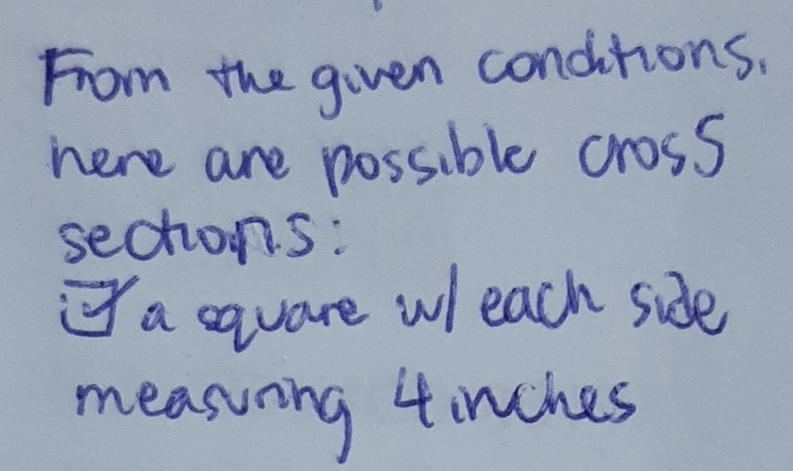 From the given conditions,
here are possible cross
sections:
☑ a square w/ each side
measuring 4 inches